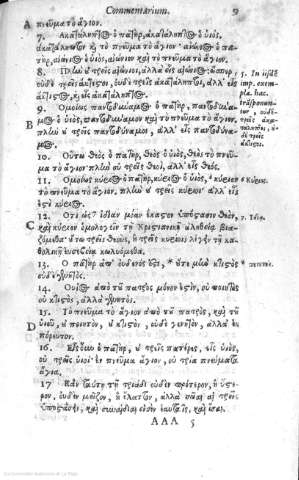 Commentarium. 9
A πνεῦμα τὸ ἅγιον.
7. Ἀκατάληπτος ὁ πατὴρ, ἀκατάληπτος ὁ υἱὸς,
ἀκατάληπτον καὶ τὸ πνεῦμα τὸ ἅγιον· αἰώνιος ὁ πα-
τὴρ, αἰώνιος ὁ υἱὸς, αἰώνιον καὶ τὸ πνεῦμα τὸ ἅγιον.
8. Πλὴν οὐ τρεῖς αἰώνιοι, ἀλλὰ εἷς αἰώνιος, ὥσπερ
οὐδὲ τρεῖς ἄκτιστοι, οὐδὲ τρεῖς ἀκατάληπτοι, ἀλλ' εἷς
ἄκτιστος, καὶ εἷς ἀκατάληπτος.
9. Ὁμοίως παντοδύναμος ὁ πατὴρ, παντοδύναμ-
B ὁ υἱὸς, παντοδύναμον καὶ τὸ πνεῦμα τὸ ἅγιον.
πλὴν οὐ τρεῖς παντοδύναμοι, ἀλλ' εἷς παντοδύνα-
μος.
10. Οὕτω θεὸς ὁ πατὴρ, θεὸς ὁ υἱὸς, θεὸς τὸ πνεῦ-
μα τὸ ἅγιον· πλὴν οὐ τρεῖς θεοὶ, ἀλλ' εἷς θεός.
11. Ὁμοίως κύριος ὁ πατὴρ, κύριος ὁ υἱὸς, κύριον
τὸ πνεῦμα τὸ ἅγιον. πλὴν οὐ τρεῖς κύριοι ἀλλ' εἷς
ἐστὶ κύριος.
12. Ὅτι ὡς ἰδίαν μίαν ἑκάστην ὑπόστασιν θεὸν,
C καὶ κύριον ὁμολογεῖν τῇ Χριστιανικῇ ἀληθείᾳ βια-
ζόμεθα· οὕτω τρεῖς θεοὺς, ἢ τρεῖς κυρίους λέγειν τῇ κα-
θολικῇ εὐσεβείᾳ κωλυόμεθα.
13. Ὁ πατὴρ ἀπ' οὐδενός ἐστι, * οὔτε μὴν κτιστὸς
οὐδὲ γεννητός.
14. Ὁ υἱὸς ἀπὸ τοῦ πατρὸς μόνου ἐστὶν, οὐ ποιητὸς
οὐ κτιστὸς, ἀλλὰ γεννητός.
15. Τὸ πνεῦμα τὸ ἅγιον ἀπὸ τοῦ πατρὸς, καὶ τοῦ
D υἱοῦ, οὐ ποιητὸν, οὐ κτιστὸν, οὐδὲ γεννητὸν, ἀλλὰ ἐκ-
πόρευτον.
16. Εἷς οὖν ὁ πατὴρ, οὐ τρεῖς πατέρες, εἷς υἱὸς,
οὐ τρεῖς υἱοί· ἓν πνεῦμα ἅγιον, οὐ τρία πνεύματα
ἅγια.
17 Κἂν ταύτῃ τῇ τριάδι οὐδὲν πρότερον, ἢ ὕστε-
ρον, οὐδὲν μεῖζον, ἢ ἔλαττον, ἀλλὰ πᾶσαι αἱ τρεῖς
ὑποστάσεις, καὶ συναΐδιοι εἰσὶν ἑαυταῖς, καὶ ἴσαι.
AAA 5